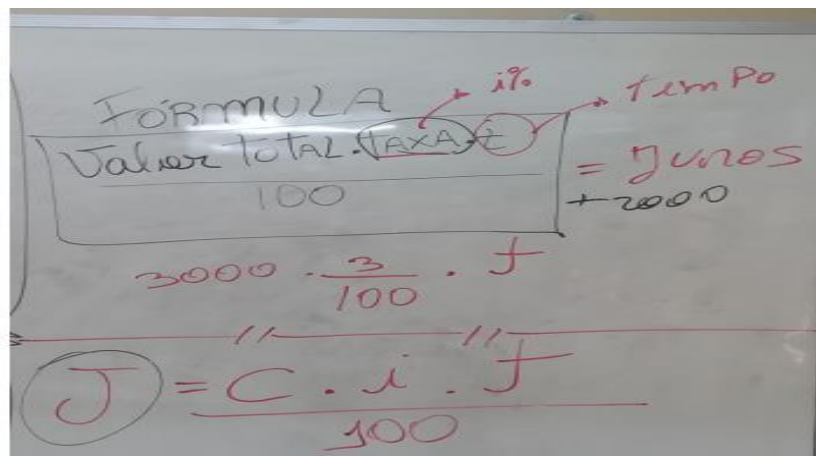 FÓRMULA
i%
tempo
Valor TOTAL . TAXA . t
100
= Juros
+2000
3000 . 3/100 . t
// //
J = C . i . t
100